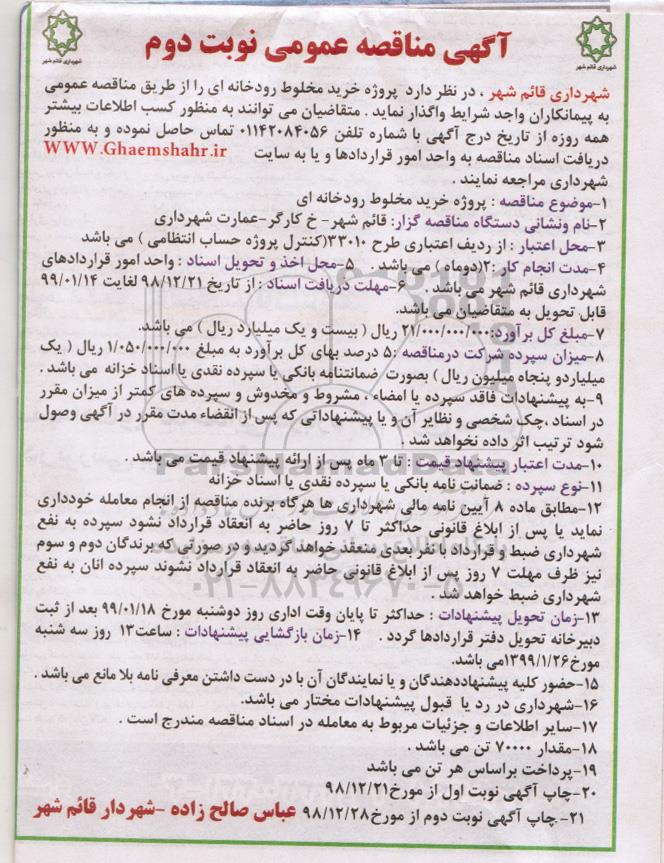 آگهی مناقصه عمومی نوبت دوم
شهرداری قائم شهر
شهرداری قائم شهر
شهرداری قائم شهر ، در نظر دارد پروژه خرید مخلوط رودخانه ای را از طریق مناقصه عمومی
به پیمانکاران واجد شرایط واگذار نماید . متقاضیان می توانند به منظور کسب اطلاعات بیشتر
همه روزه از تاریخ درج آگهی با شماره تلفن ۰۱۱۴۲۰۸۴۰۵۶ تماس حاصل نموده و به منظور
دریافت اسناد مناقصه به واحد امور قراردادها و یا به سایت WWW.Ghaemshahr.ir
شهرداری مراجعه نمایند .
۱-موضوع مناقصه : پروژه خرید مخلوط رودخانه ای
۲-نام ونشانی دستگاه مناقصه گزار: قائم شهر- خ کارگر-عمارت شهرداری
۳-محل اعتبار : از ردیف اعتباری طرح ۳۳۰۱۰(کنترل پروژه حساب انتظامی ) می باشد
۴-مدت انجام کار :۲(دوماه ) می باشد . ۵-محل اخذ و تحویل اسناد : واحد امور قراردادهای
شهرداری قائم شهر می باشد . ۶-مهلت دریافت اسناد : از تاریخ ۹۸/۱۲/۲۱ لغایت ۹۹/۰۱/۱۴
قابل تحویل به متقاضیان می باشد.
۷-مبلغ کل برآورد:۲۱/۰۰۰/۰۰۰/۰۰۰ ریال ( بیست و یک میلیارد ریال ) می باشد.
۸-میزان سپرده شرکت درمناقصه :۵ درصد بهای کل برآورد به مبلغ ۱/۰۵۰/۰۰۰/۰۰۰ ریال ( یک
میلیاردو پنجاه میلیون ریال ) بصورت ضمانتنامه بانکی یا سپرده نقدی یا اسناد خزانه می باشد .
۹-به پیشنهادات فاقد سپرده یا امضاء ، مشروط و مخدوش و سپرده های کمتر از میزان مقرر
در اسناد ،چک شخصی و نظایر آن و یا پیشنهاداتی که پس از انقضاء مدت مقرر در آگهی وصول
شود ترتیب اثر داده نخواهد شد .
۱۰-مدت اعتبار پیشنهاد قیمت : تا ۳ ماه پس از ارائه پیشنهاد قیمت می باشد .
۱۱-نوع سپرده : ضمانت نامه بانکی یا سپرده نقدی یا اسناد خزانه
۱۲-مطابق ماده ۸ آیین نامه مالی شهرداری ها هرگاه برنده مناقصه از انجام معامله خودداری
نماید یا پس از ابلاغ قانونی حداکثر تا ۷ روز حاضر به انعقاد قرارداد نشود سپرده به نفع
شهرداری ضبط و قرارداد با نفر بعدی منعقد خواهد گردید و در صورتی که برندگان دوم و سوم
نیز ظرف مهلت ۷ روز پس از ابلاغ قانونی حاضر به انعقاد قرارداد نشوند سپرده انان به نفع
شهرداری ضبط خواهد شد .
۱۳-زمان تحویل پیشنهادات : حداکثر تا پایان وقت اداری روز دوشنبه مورخ ۹۹/۰۱/۱۸ بعد از ثبت
دبیرخانه تحویل دفتر قراردادها گردد . ۱۴-زمان بازگشایی پیشنهادات : ساعت۱۳ روز سه شنبه
مورخ۱۳۹۹/۱/۲۶می باشد.
۱۵-حضور کلیه پیشنهاددهندگان و یا نمایندگان آن با در دست داشتن معرفی نامه بلا مانع می باشد .
۱۶-شهرداری در رد یا قبول پیشنهادات مختار می باشد.
۱۷-سایر اطلاعات و جزئیات مربوط به معامله در اسناد مناقصه مندرج است .
۱۸-مقدار ۷۰۰۰۰ تن می باشد .
۱۹-پرداخت براساس هر تن می باشد
۲۰-چاپ آگهی نوبت اول از مورخ۹۸/۱۲/۲۱
۲۱-.چاپ آگهی نوبت دوم از مورخ۹۸/۱۲/۲۸ عباس صالح زاده -شهردار قائم شهر
ParsNamadData
۰۲۱-۸۸۳۴۹۶۷۰-۵